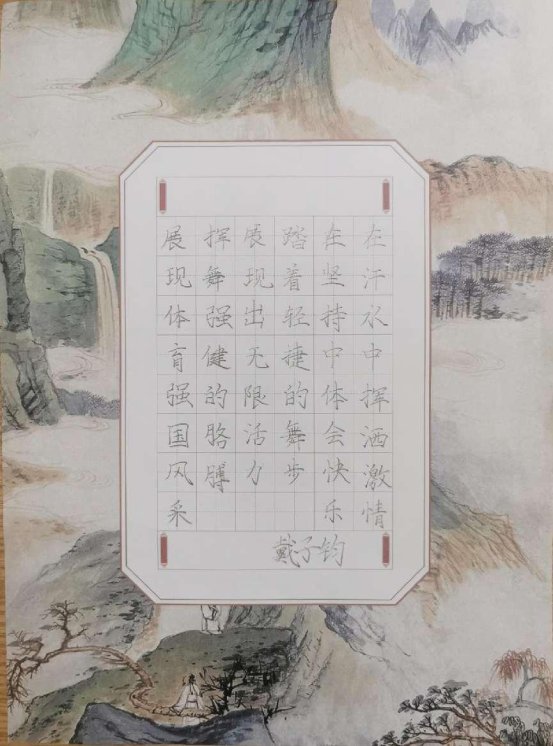 在汗水中挥洒激情
在坚持中体会快乐
踏着轻捷的舞步
展现出无限活力
挥舞强健的胳膊
展现体育强国风采
戴子钧